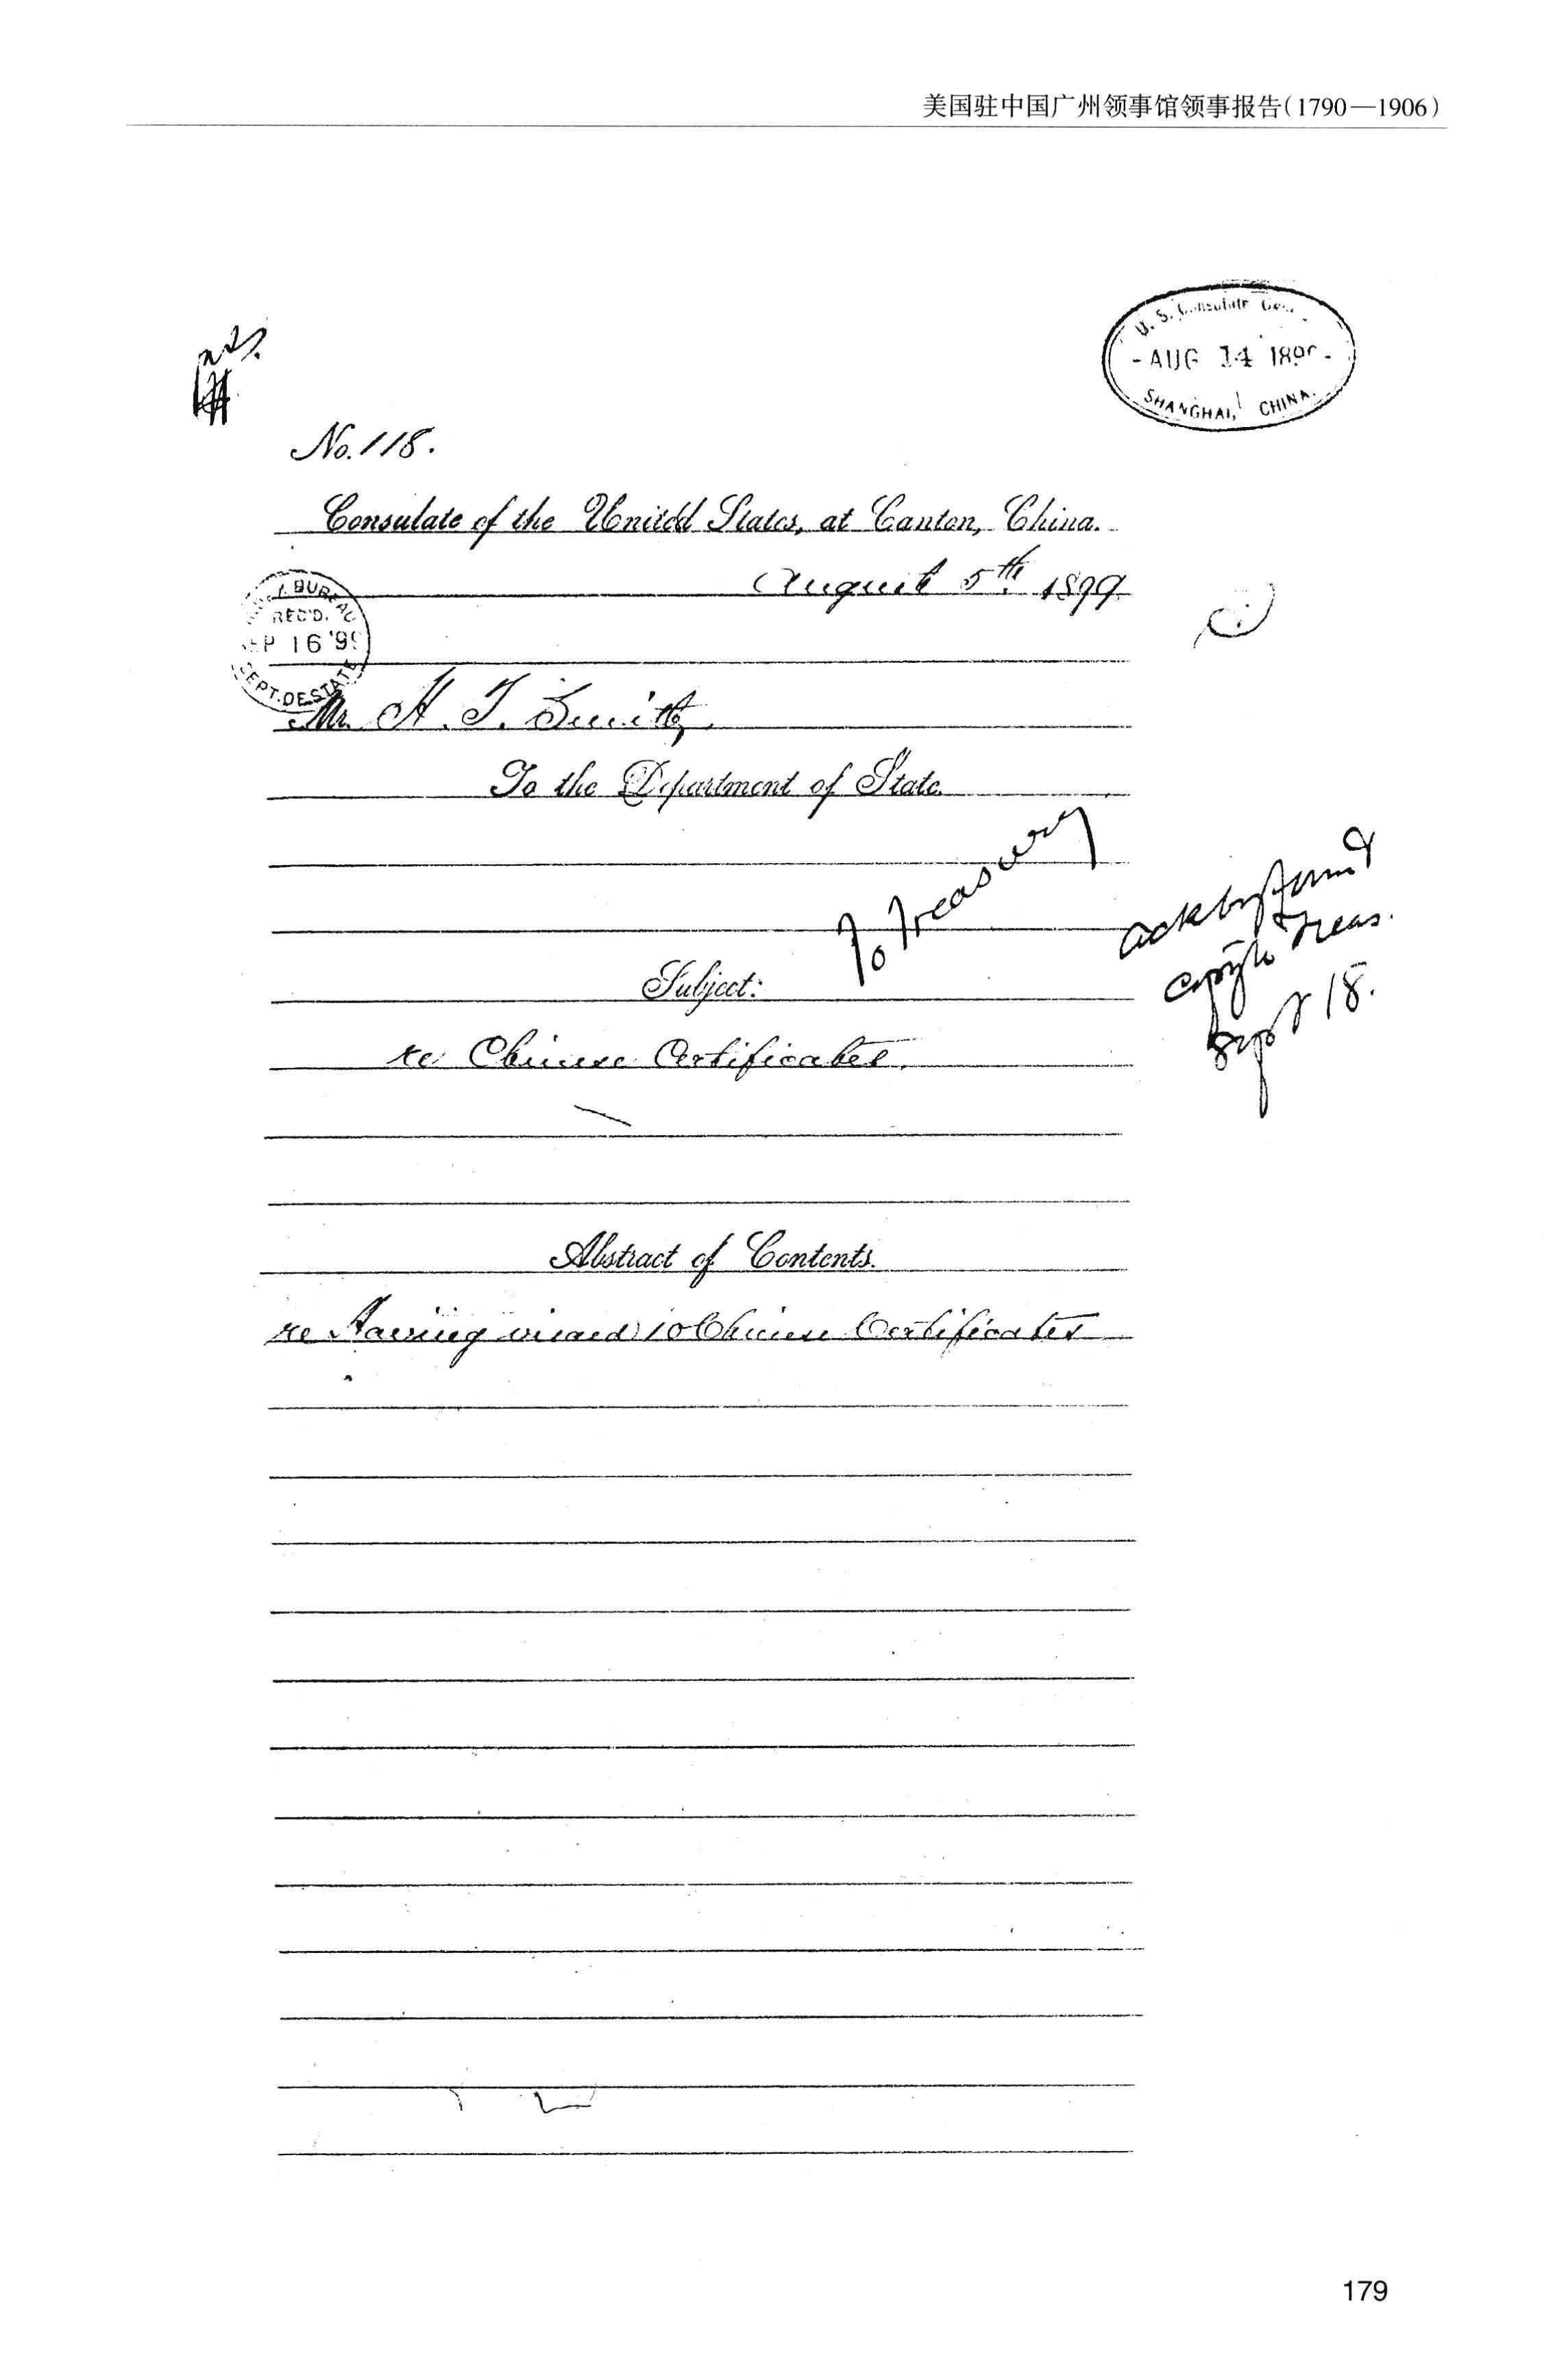 美国驻中国广州领事馆领事报告(1790—1906)
U. S. Consulate
- AUG 14 189 -
SHANGHAI, CHINA.
No. 118.
Consulate of the United States, at Canton, China.
August 5th. 1899.
BUREAU
REC'D.
SEP 16 '99
DEPT. OF STATE
Mr. H. F. Smith,
To the Department of State.
To Treasury
ack by form &
copy to Treas.
Sept 18.
Subject:
re Chinese Certificates.
Abstract of Contents.
re Having visaed 10 Chinese Certificates
179